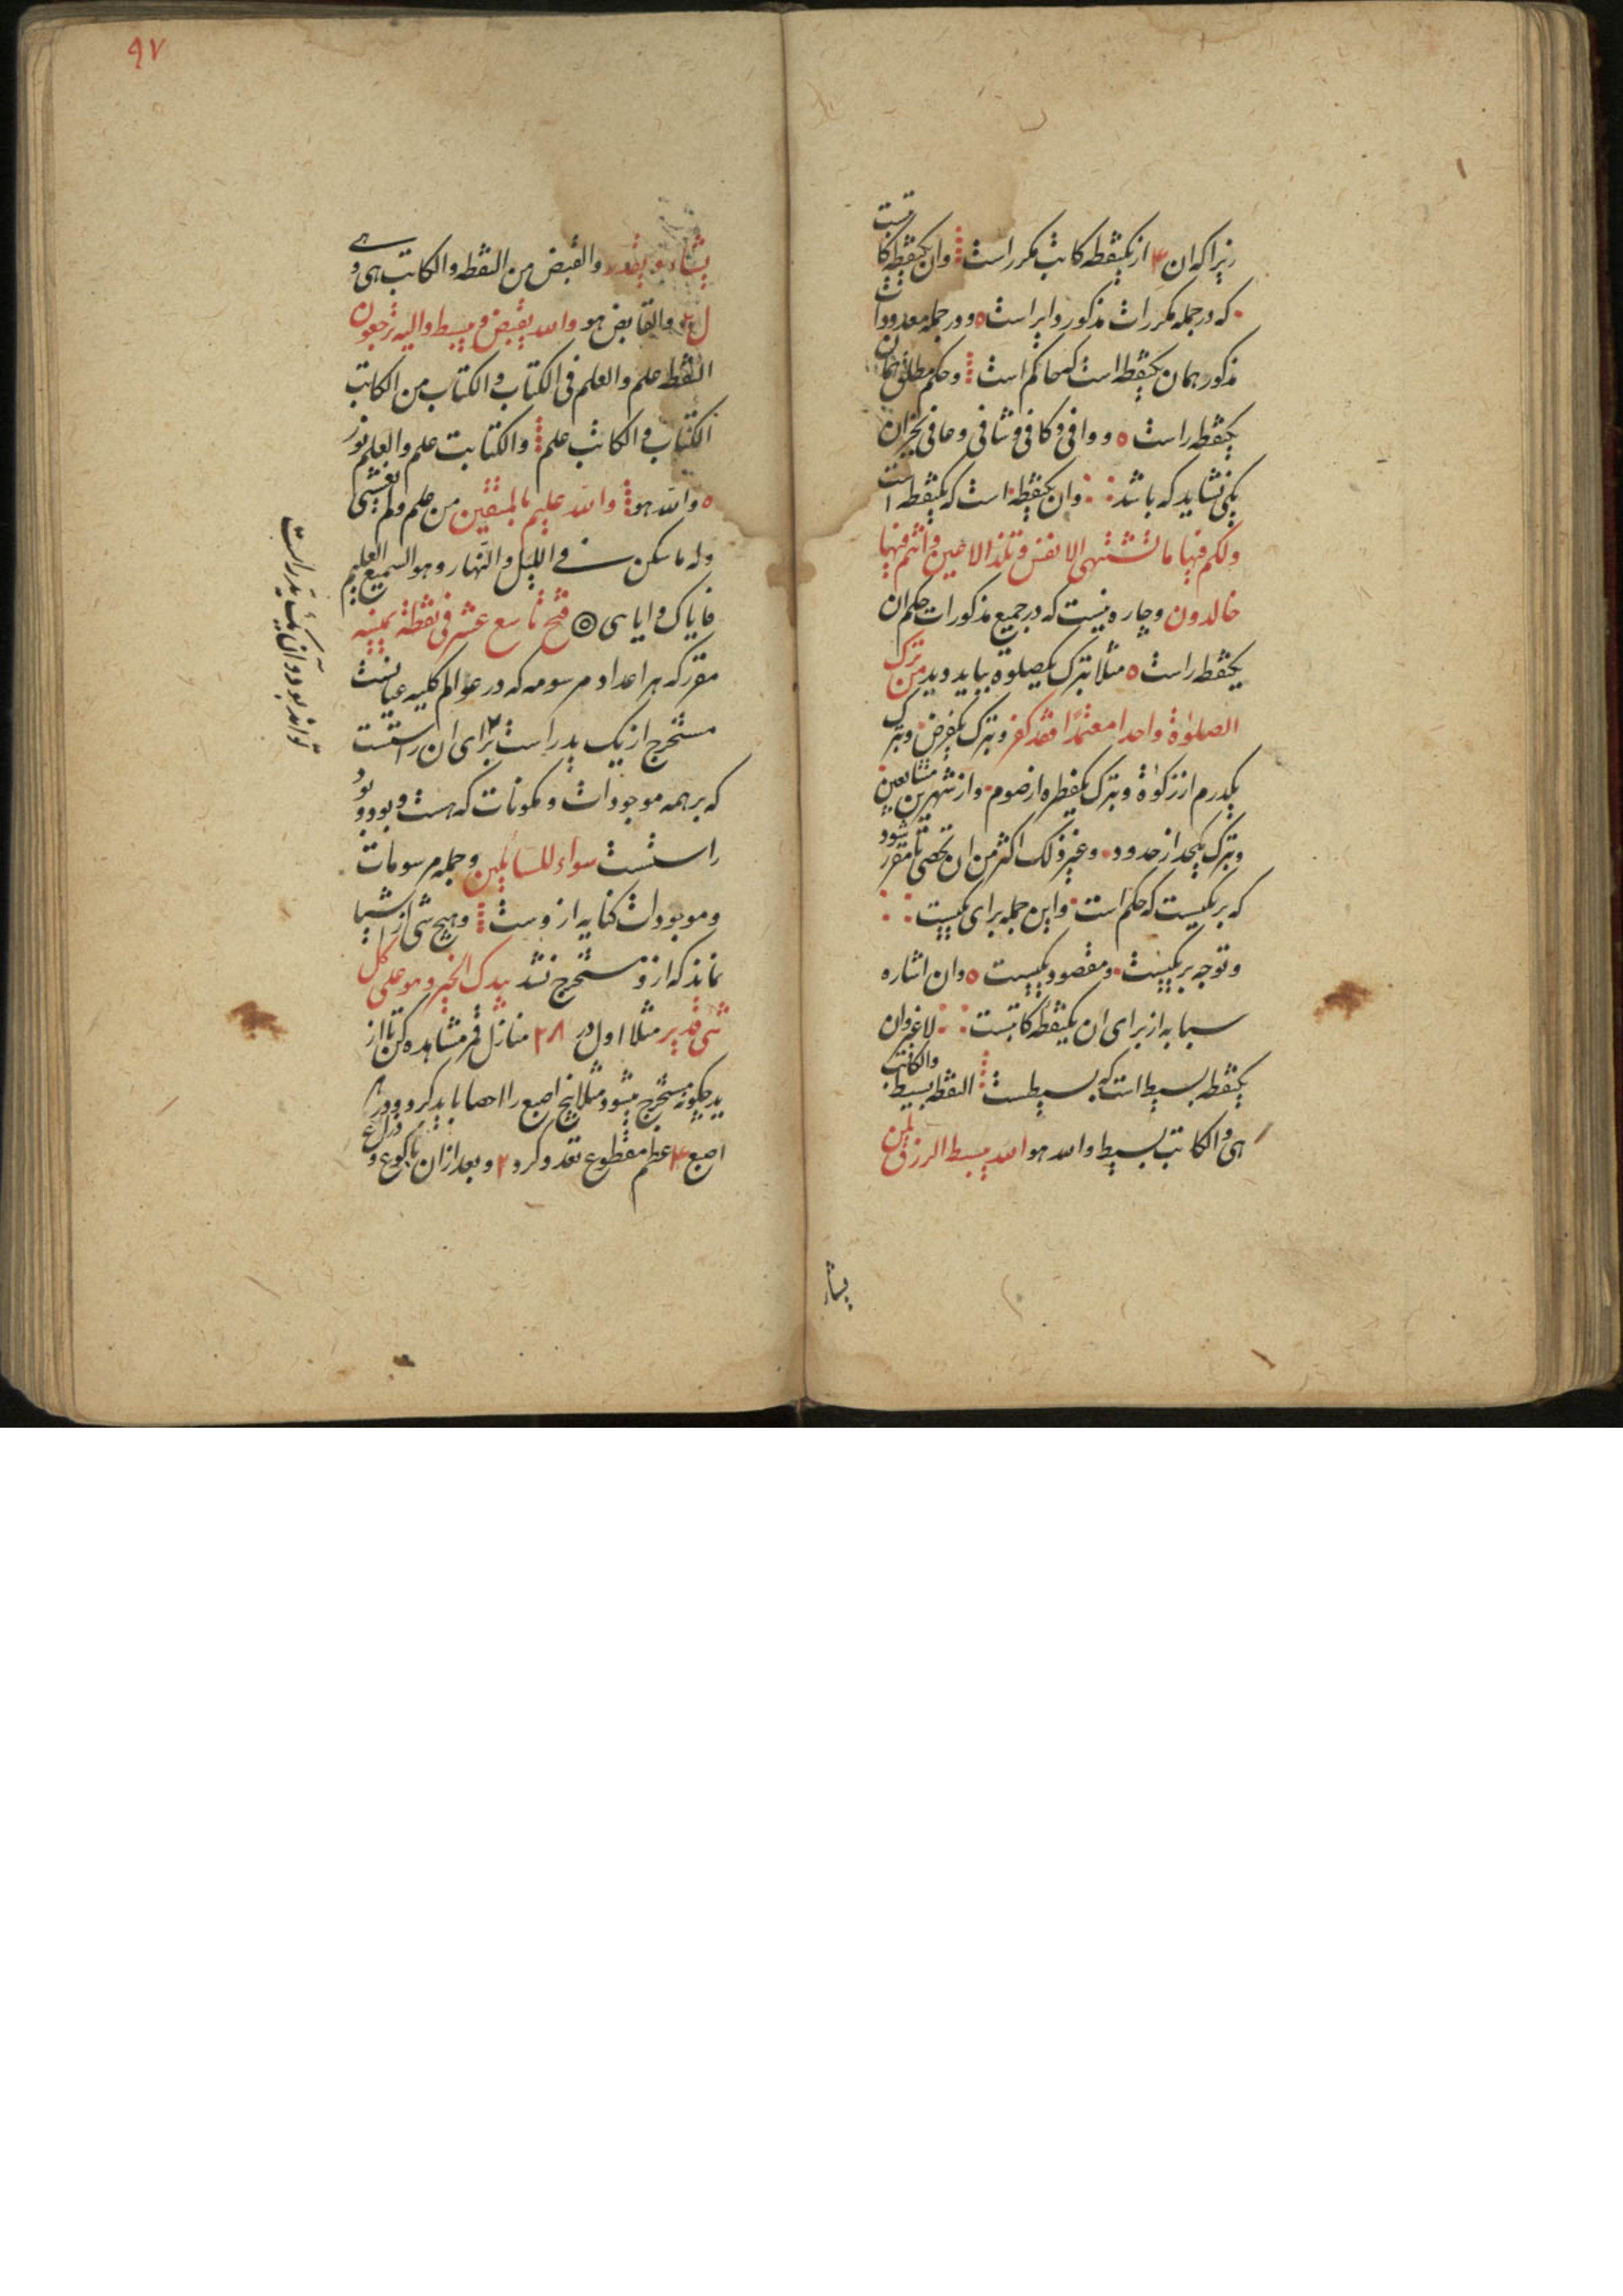 زیرا که ان ۴ از یکنقطه کاتب مکرر است وان یکنقطه کاتبست
که در جمله مکررات مذکور دایر است ه ودر جمله معدودات
مذکور همان یکنقطه است که حاکم است وحکم مطلق همان
یکنقطه راست ه ووافی وکافی وشافی وعافی بجز ان
یکی نشاید که باشد وان یکنقطه است که یکنقطه است
ولکم فیها ما تشتهی الانفس وتلذ الاعین وانتم فیها
خالدون وچاره نیست که در جمیع مذکورات حکم ان
یکنقطه راست ه مثلا بترک یکصلوة بیاید دید من ترک
الصلوٰة واحدا معتمدًا فقد کفر وبترک یکفرض وبترک
یکدرم از زکوٰة وبترک یکفطره از صوم واز شهرین متتابعین
وبترک یکحد از حدود وغیر ذلک اکثر من ان تحصی تا مقرر شود
که بر یکیست که حکم است واین جمله برای یکیست
وتوجه بر یکیست ومقصود یکیست ه وان اشاره
سبابه از برای ان یکنقطه کاتبست لا غیر وان
یکنقطه بسیط است که بسیطست النقطه بسیط والکاتب
هی والکاتب بسیط والله هو الله یبسط الرزق لمن
یشاء
۹۷
یشاء ویقدر والقبض من النقطه والکاتب هی و
والقابض هو والله یقبض ویبسط والیه ترجعون
النقطه علم والعلم فی الکتاب والکتاب من الکاتب
الکتاب والکاتب علم والکتابت علم والعلم نور
ه والله هو والله علیم بالمتقین من علم ولم
وله ما سکن فی اللیل والنهار وهو السمیع العلیم
فایاک وایای ۞ فتح تاسع عشر فی نقطة
مقرر که هر اعداد مرسومه که در عوالم کلیه
مستخرج از یک ید راست برای ان راستست
که بر همه موجودات ومکونات که هست وبود وبود
راستست سواء للسایلین وجمله مرسومات
وموجودات کنایه از وست وهیچ شی از اشیا
نماند که ازو مستخرج نشد بیدک الخیر وهو علی کل
شی قدیر مثلا اول در ۲۸ منازل قمر مشاهده کن تا از
ید چگونه مستخرج میشود مثلا پنج اصبع را احصا باید کرد ودر هر
اصبع ۴ عظم مقطوع تعدد کرد ۲ وبعد ازان تا کوع وذراع
تواند بود وآن یک ید راست